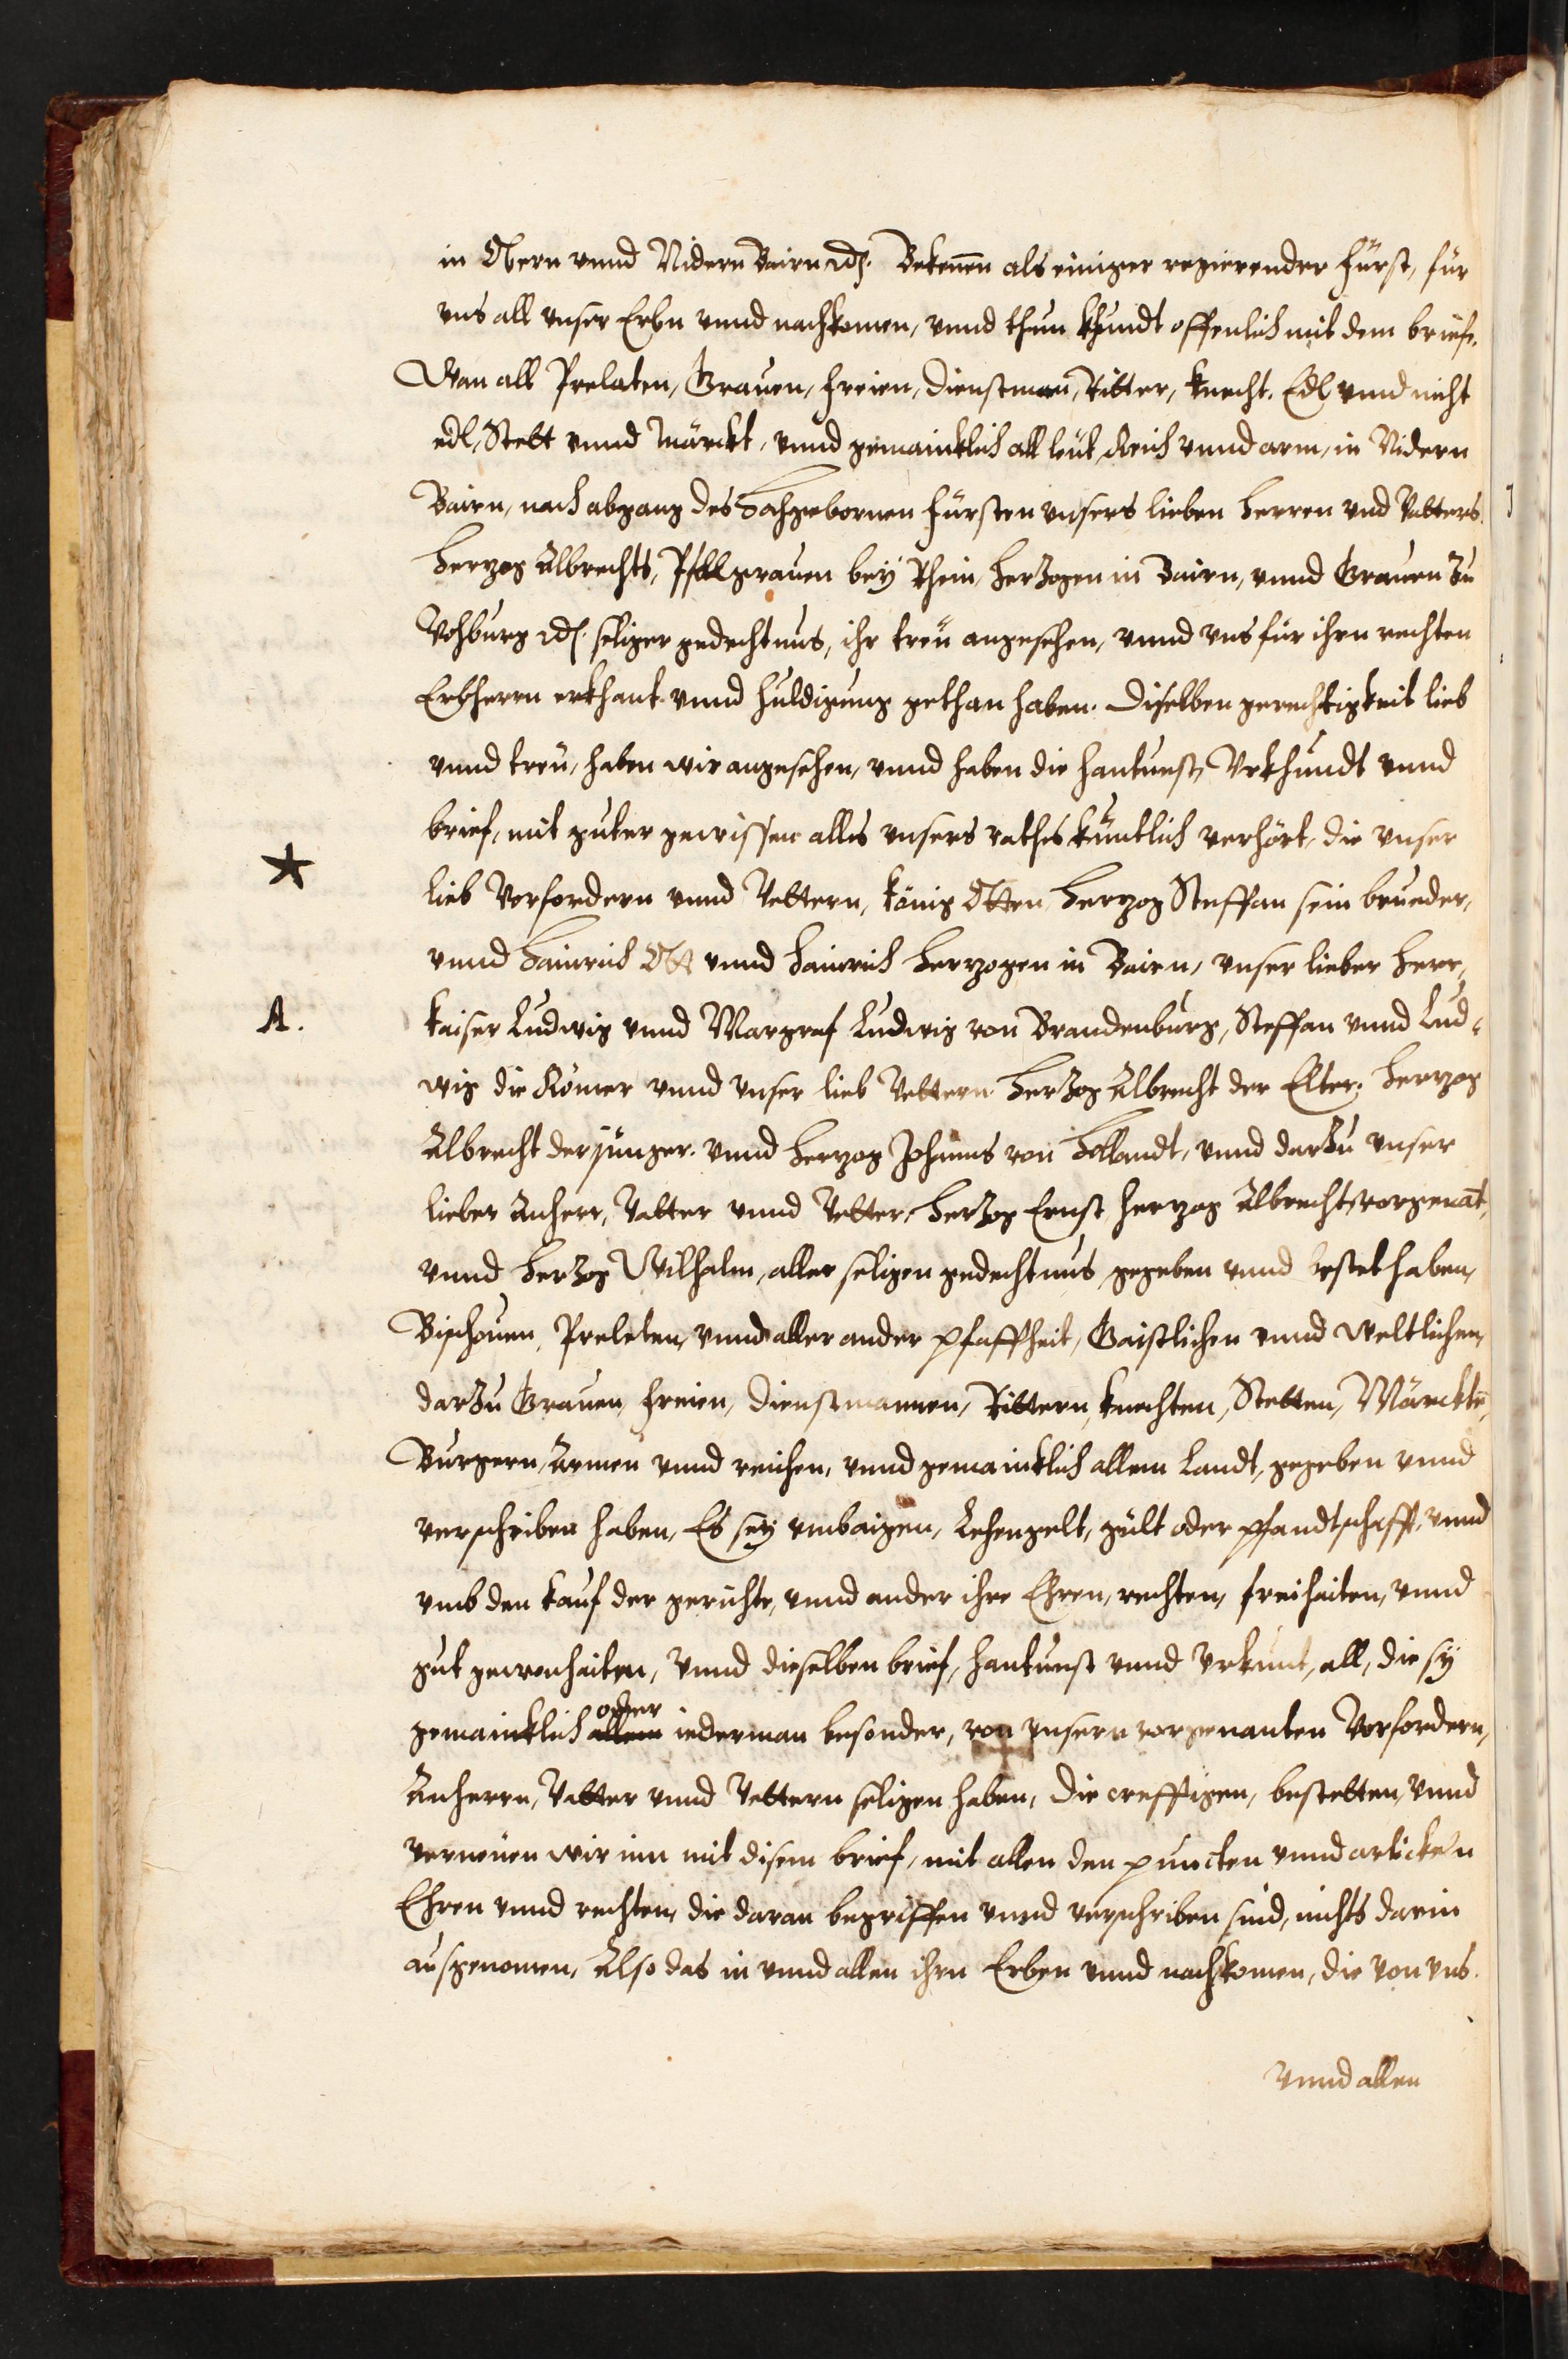 in Obern vnnd Nidern Bairn etc. Bekenn̄ als einiger regierender Fürst, für
vns all vnser Erbn vnnd nachkomen, vnnd thun khundt offenlich mit dem briefe.
Wan all Prelaten, Grauen, freien, dienstman̄, Ritter, knecht, Edl vnnd nicht
edl, Stett vnnd Märckt, vnnd gemaincklich all leut, Reich vnnd arm, in Nidern
Bairn, nach abgang des Hochgebornen Fürsten vnsers lieben Herren vnd Vatters
Herzog Albrechts, Pfallzgrauen bey Rhein, Herzogen in Bairn, vnnd Grauen zu
Vohburg etc. seliger gedechtnus, ihr treu angesehen, vnnd vns für ihrn rechten
Erbherrn erkhant vnnd huldigung gethan haben. Diselben gerechtigkeit lieb
vnnd treu, haben wir angesehen, vnnd haben die hantuest, Vrkhundt vnnd
brief, mit guter gewissen alles vnsers rathes kuntlich verhört, die vnser
*
lieb Vorfordern vnnd Vettern, König Otten, Herzog Steffan sein brueder,
vnnd Hainrich Ott vnnd Hainrich Herzogen in Bairn, vnser lieber Herr,
A.
Kaiser Ludwig vnnd Margraf Ludwig von Brandenburg, Steffan vnnd Lud-
wig die Römer vnnd vnser lieb Vettern Herzog Albrecht der Elter, Herzog
Albrecht der jünger vnnd Herzog Johanns von Hollandt, vnnd darzu vnser
lieber Anherr, Vatter vnnd Vetter, Herzog Ernst Herzog Albrecht vorgenāt,
vnnd Herzog Wilhalm, aller seligen gedechtnus gegeben vnnd bestet haben,
Bischouen, Prelaten, vnnd aller ander pfaffheit, Gaistlichen vnnd weltlichen,
darzu Grauen, freien, dienstmannen, Rittern, knechten, Stetten, Märcktē,
Burgern, Armen vnnd reichen, vnnd gemaincklich allem Landt, gegeben vnnd
verschriben haben, Es sey vmb aigen, Lehengelt, gült oder pfandtschafft, vnnd
vmb den kauf der gerichte, vnnd ander ihre Ehren, rechten, freihaiten, vnnd
gut gewonhaiten, Vnnd dieselben brief, hantuest vnnd Vrkunt, all, die sy
gemaincklich allem oder iederman besonder, von vnsern vorgenanten Vorfordern,
Anherrn, Vatter vnnd Vettern seligen haben, die crefftigen, bestetten, Vnnd
verneuen wir inn mit disem brief, mit allen den puncten vnnd artickeln
Ehren vnnd rechten, die daran begriffen vnnd verschriben sind, nichts darin
ausgenomen, Also das in vnnd allen ihrn Erben vnnd nachkomen, die von vns
vnnd allen